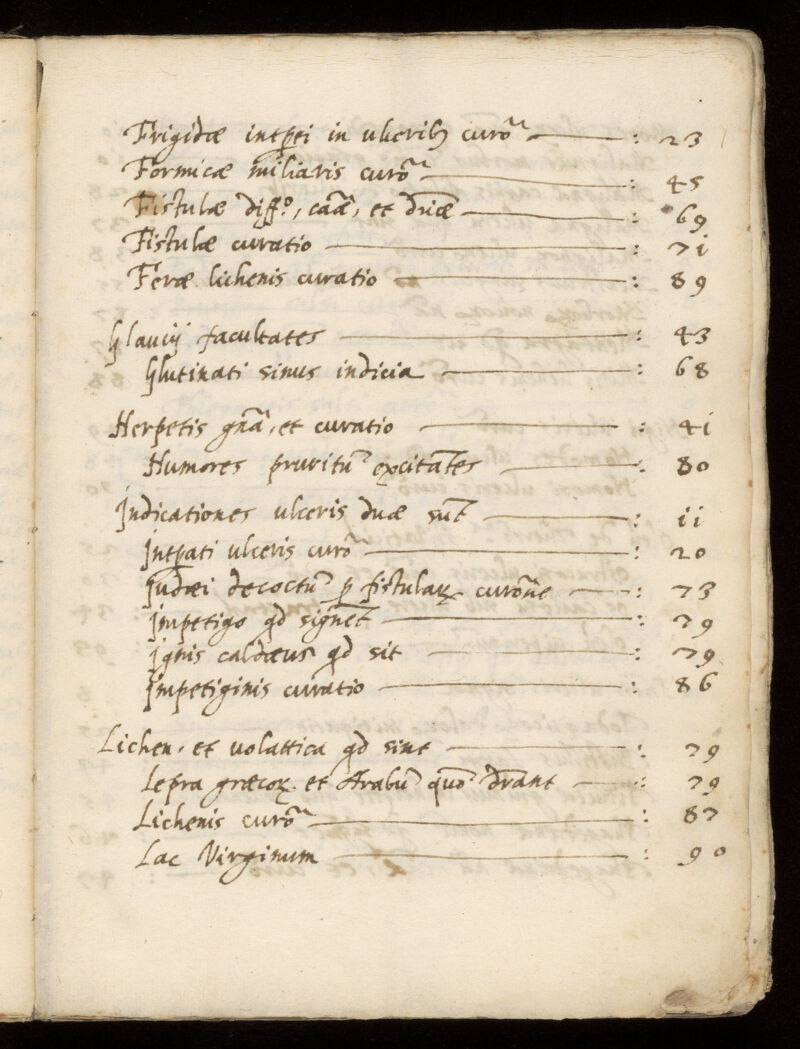 Frigidæ intp̄ei in ulcerib9 curõ — : 23
Formicæ miliaris curõ — : 45
Fistulæ diff.º, caãe, et dũcæ — : 69
Fistulæ curatio — : 7i
Feræ lichenis curatio — : 89
Glaucij facultates — : 43
Glutinati sinus indicia — : 68
Herpetis gñã, et curatio — : 4i
Humores pruritũ excitãtes — : 80
Indicationes ulceris duæ sũt — : ii
Intp̄ati ulceris curõ — : 20
Judæi decoctũ ꝓ fistulaꝝ curõne — : 73
Impetigo qd signẽt — : 79
Ignis caldæus qd sit — : 79
Impetiginis curatio — : 86
Lichen, et volattica qd sint — : 79
Lepra græcoꝝ et Arabũ quõ dr̃ant — : 79
Lichenis curõ — : 87
Lac Virginum — : 90